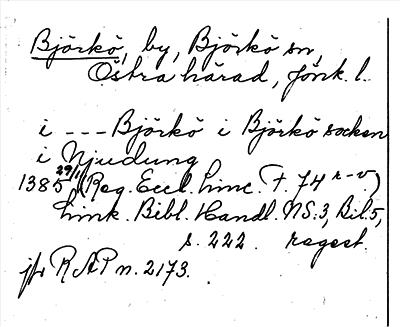 Björkö, by, Björkö sn,
Östra härad, Jönk. l.
i --- Björkö i Björkö socken
i Njudung
1385 29/1 (Reg. Eccl. Linc. F. 74 r-v)
Link. Bibl. Handl. NS.3, Bil. 5,
s. 222. regest.
jfr RAP n. 2173.